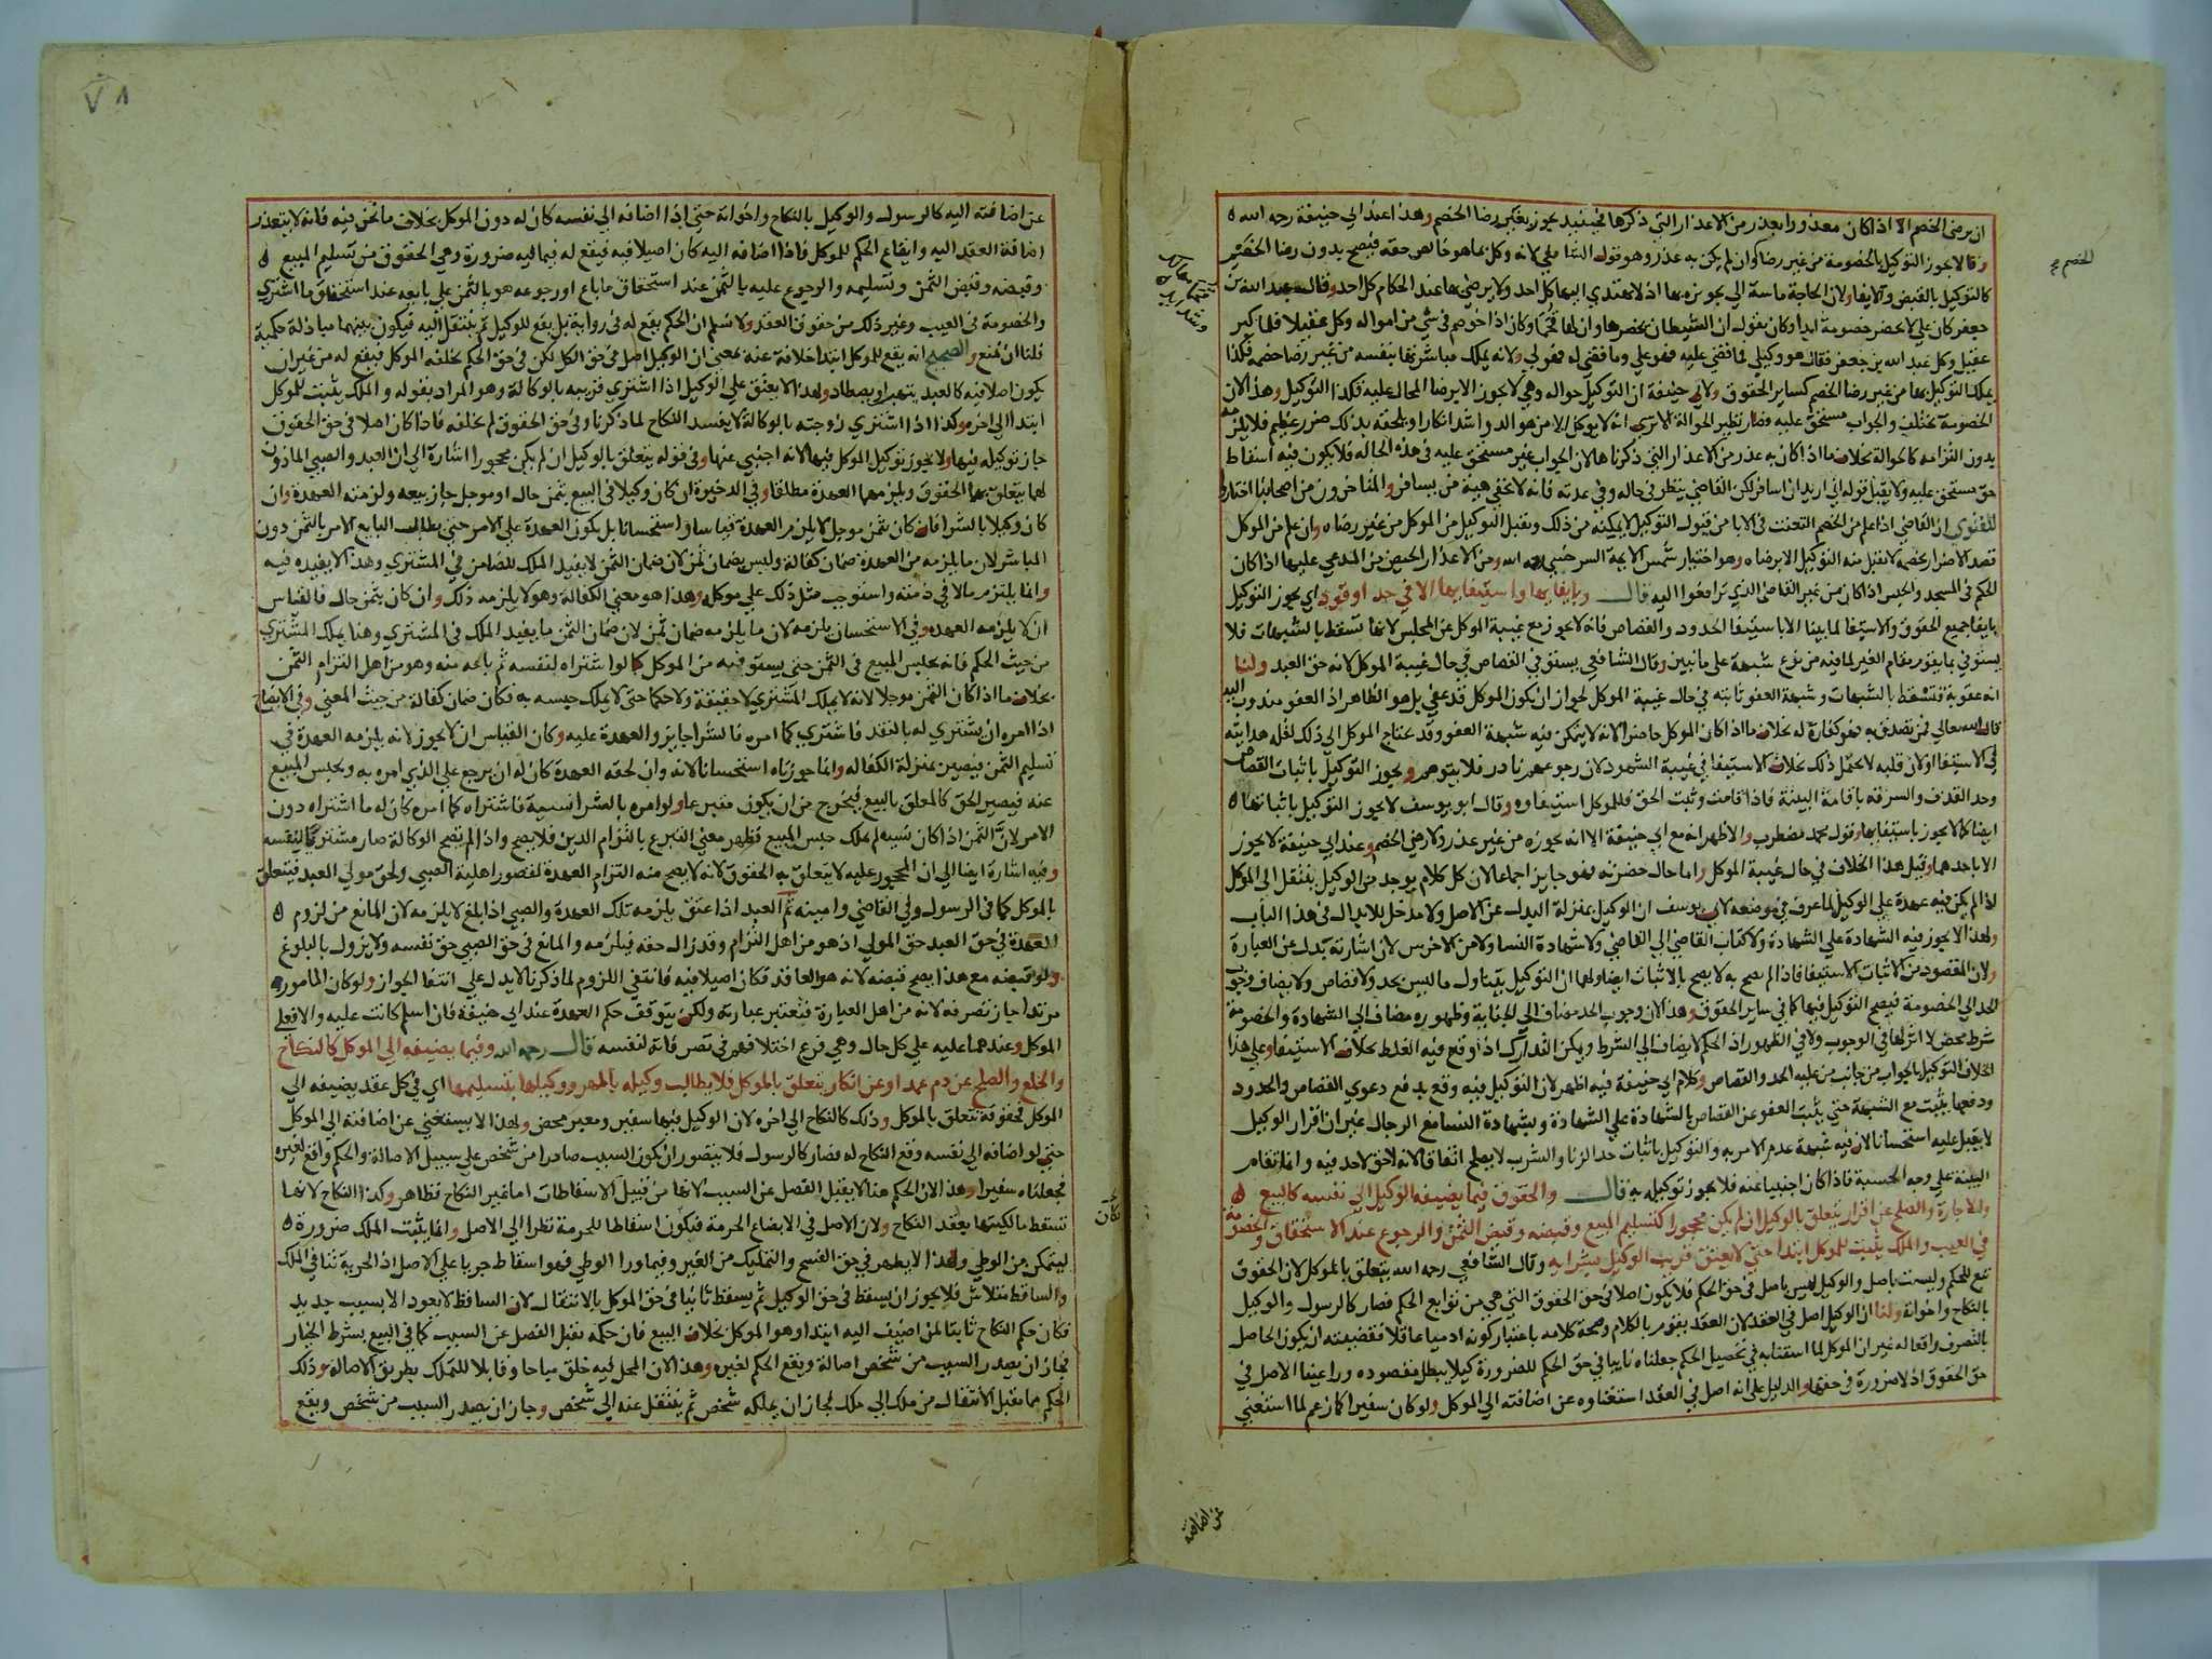 ان يرضى الخصم الا اذا كان معذورا بعذر من الاعذار التي ذكرها فحينئذ يجوز بغير رضا الخصم وهذا عند ابي حنيفة رحمه الله
وقالا يجوز التوكيل بالخصومة من غير رضاه وان لم يكن به عذر وهو قول الشافعي لانه وكل بما هو خالص حقه فيصح بدون رضا الخصم
كالتوكيل بالقبض والايفا ولان الحاجة ماسة الى تجويزه بها اذ لا يهتدي اليها كل احد ولا يرضى بها عند الحكام كل احد وقال عبد الله بن
جعفر كان علي لا يحضر خصومة ابدا وكان يقول ان الشيطان يحضرها وان لها قحما وكان اذا خوصم في شي من امواله وكل عقيلا فلما كبر
عقيل وكل عبد الله بن جعفر فقال هو وكيلي فما قضي عليه فهو علي وما قضي له فهو لي ولانه يملك مباشرتها بنفسه من غير رضا خصمه فكذا
يملك التوكيل بها من غير رضا الخصم كساير الحقوق ولابي حنيفة ان التوكيل حواله وهي لا يجوز الا برضا المحال عليه فكذا التوكيل وهذا لان
الخصومة تختلف والجواب مستحق عليه فصار نظير الحوالة الا ترى انه لا يوكل الا من هو الد واشد انكارا ويلحقه بذلك ضرر عظيم فلا يلزمه
بدون التزامه كالحوالة بخلاف ما اذا كان به عذر من الاعذار التي ذكرناها لان الجواب غير مستحق عليه في هذه الحالة فلا يكون فيه اسقاط
حق مستحق عليه ولا يقبل قوله اني اريد ان اسافر لكن القاضي ينظر في حاله وفي عدته فانه لا تخفى هيئة من يسافر والمتاخرون من اصحابنا اختاروا
للفتوى ان القاضي اذا علم من الخصم التعنت في الابا من قبول التوكيل لا يمكنه من ذلك ويقبل التوكيل من الموكل من غير رضاه وان علم من الموكل
قصد الاضرار بخصمه لا يقبل منه التوكيل الا برضاه وهو اختيار شمس الايمة السرخسي رحمه الله ومن الاعذار الحيض من المدعي عليها اذا كان
الحكم في المسجد والحبس اذا كان من غير القاضي الذي ترافعوا اليه قال وبايفايها واستيفايها الا في حد او قود اي يجوز التوكيل
بايفا جميع الحقوق والاستيفا لما بينا الا باستيفا الحدود والقصاص فانه لا يجوز مع غيبة الموكل عن المجلس لانها تسقط بالشبهات فلا
يستوفي بما يقوم مقام الغير لما فيه من نوع شبهة على ما نبين وقال الشافعي يستوفي القصاص في حال غيبة الموكل لانه حق العبد ولنا
انه عقوبة فتسقط بالشبهات وشبهة العفو ثابته في حال غيبة الموكل لجواز ان يكون الموكل قد عفى بل هو الظاهر اذ العفو مندوب اليه
قال الله تعالى فمن تصدق به فهو كفارة له بخلاف ما اذا كان الموكل حاضرا لانه لا يتمكن فيه شبهة العفو وقد يحتاج الموكل الى ذلك لقلة هدايته
في الاستيفا او لان قلبه لا يحتمل ذلك بخلاف الاستيفا في غيبة الشهود لان رجوعهم نادر فلا يتوهم ويجوز التوكيل باثبات القصاص
وحد القذف والسرقه باقامة البينة فاذا قامت وثبت الحق فللموكل استيفاوه وقال ابو يوسف لا يجوز التوكيل باثباتها
ايضا كما لا يجوز باستيفايها وقول محمد مضطرب والاظهر انه مع ابي حنيفة الا انه يجوزه من غير عذر ولا رضى الخصم وعند ابي حنيفة لا يجوز
الا باحدهما وقيل هذا الخلاف في حال غيبة الموكل واما حال حضرته فهو جايز اجماعا لان كل كلام يوجد من الوكيل ينتقل الى الموكل
اذا لم يكن فيه عهدة على الوكيل لما عرف في موضعه لابي يوسف ان الوكيل بمنزلة البدل عن الاصل ولا مدخل للابدال في هذا الباب
ولهذا لا يجوز فيه الشهادة على الشهادة ولا كتاب القاضي الى القاضي ولا شهادة النسا ولا من الاخرس لان اشارته بدل عن العبارة
ولان المقصود من الاثبات الاستيفا فاذا لم يصح به لا يصح بالاثبات ايضا ولهما ان التوكيل يتناول ما ليس بحد ولا قصاص ولا يضاف وجوب
الحد الى الخصومة فيصح التوكيل فيها كما في ساير الحقوق وهذا لان وجوب الحد مضاف الى الجناية وظهوره مضاف الى الشهادة والخصومة
شرط محض لا اثر لها في الوجوب ولا في الظهور اذ الحكم لا يضاف الى الشرط ويمكن التدارك اذا وقع فيه الغلط بخلاف الاستيفا وعلى هذا
الخلاف التوكيل بالجواب من جانب من عليه الحد والقصاص وكلام ابي حنيفة فيه اظهر لان التوكيل فيه وقع بدفع دعوى القصاص والحدود
ودفعها يثبت مع الشبهة حتى يثبت العفو عن القصاص بالشهادة على الشهادة وبشهادة النسا مع الرجال غير ان اقرار الوكيل
لا يقبل عليه استحسانا لان فيه شبهة عدم الامر به والتوكيل باثبات حد الزنا والشرب لا يصلح اتفاقا لانه لا حق لاحد فيه وانما تقام
البينة على وجه الحسبة فاذا كان اجنبيا عنه فلا يجوز توكيله به قال والحقوق فيما يضيفه الوكيل الى نفسه كالبيع
والاجارة والصلح عن اقرار يتعلق بالوكيل ان لم يكن محجورا كتسليم المبيع وقبضه وقبض الثمن والرجوع عند الاستحقاق والخصومة
في العيب والملك يثبت للموكل ابتدا حتى لا يعتق قريب الوكيل بشرايه وقال الشافعي رحمه الله يتعلق بالموكل لان الحقوق
تبع للحكم وليست باصل والوكيل ليس باصل في حق الحكم فلا يكون اصلا في حق الحقوق التي هي من توابع الحكم فصار كالرسول والوكيل
بالنكاح واخواته ولنا ان الوكيل اصل في العقد لان العقد يقوم بالكلام وصحة كلامه باعتبار كونه ادميا عاقلا فقضيته ان يكون الحاصل
بالتصرف واقعا له غير ان الموكل لما استنابه في تحصيل الحكم جعلناه نايبا في حق الحكم للضرورة كيلا يبطل مقصوده وراعينا الاصل في
حق الحقوق اذ لا ضرورة في حقها والدليل على انه اصل في العقد استغناوه عن اضافته الى الموكل ولو كان سفيرا كما زعم لما استغنى
الخصم
عن اضافته
عن اضافته اليه كالرسول والوكيل بالنكاح واخواته حتى اذا اضافه الى نفسه كان له دون الموكل بخلاف ما نحن فيه فانه لا يتعذر
اضافة العقد اليه وايقاع الحكم للموكل فاذا اضافه اليه كان اصيلا فيه فيقع له فيما فيه ضرورة وهي الحقوق من تسليم المبيع
وقبضه وقبض الثمن وتسليمه والرجوع عليه بالثمن عند استحقاق ما باع او رجوعه هو بالثمن على بايعه عند استحقاق ما اشترى
والخصومة في العيب وغير ذلك من حقوق العقد ولا نسلم ان الحكم يقع له في رواية بل يقع للوكيل ثم ينتقل اليه فيكون بينهما مبادلة حكمية
فلنا ان نمنع والصحيح انه يقع للموكل ابتدا خلافة عنه بمعنى ان الوكيل اصل في حق الكل لكن في حق الحكم يخلفه الموكل فيقع له من غير ان
يكون اصلا فيه كالعبد يتهب او يصطاد ولهذا لا يعتق على الوكيل اذا اشترى قريبه بالوكالة وهو المراد بقوله والملك يثبت للموكل
ابتدا الى اخره وكذا اذا اشترى زوجته بالوكالة لا يفسد النكاح لما ذكرنا وفي حق الحقوق لم يخلفه فاذا كان اهلا في حق الحقوق
جاز توكيله فيها ولا يجوز توكيل الموكل فيها لانه اجنبي عنها وفي قوله يتعلق بالوكيل ان لم يكن محجورا اشارة الى ان العبد والصبي الماذون
لهما يتعلق بهما الحقوق ويلزمهما العهدة مطلقا وفي الذخيرة ان كان وكيلا في البيع بثمن حال او موجل جاز بيعه ولزمته العهدة وان
كان وكيلا بالشرا فان كان بثمن موجل لا يلزم العهدة قياسا واستحسانا بل يكون العهدة على الامر حتى يطالب البايع الامر بالثمن دون
المباشر لان ما يلزمه من العهدة ضمان كفالة وليس بضمان ثمن لان ضمان الثمن لا يفيد الملك للضامن في المشتري وهذا لا يفيده فيه
وانما يلتزم مالا في ذمته واستوجب مثل ذلك على موكله وهذا هو معنى الكفالة وهو لا يلزمه ذلك وان كان بثمن حال فالقياس
ان لا يلزمه العهده وفي الاستحسان يلزمه لان ما يلزمه ضمان ثمن لان ضمان الثمن ما يفيد الملك في المشتري وهنا يملك المشتري
من حيث الحكم فانه يحبس المبيع في الثمن حتى يستوفيه من الموكل كما لو اشتراه لنفسه ثم باعه منه وهو من اهل التزام الثمن
بخلاف ما اذا كان الثمن موجلا لانه لا يملك المشتري لا حقيقة ولا حكما حتى لا يملك حبسه به فكان ضمان كفالة من حيث المعنى وفي الايضاح
اذا امره ان يشتري له بالنقد فاشترى كما امره فالشرا جايز والعهدة عليه وكان القياس ان لا يجوز لانه يلزمه العهدة في
تسليم الثمن فيصير بمنزلة الكفاله وانما جوزناه استحسانا لانه وان لحقه العهدة كان له ان يرجع على الذي امره به ويحبس المبيع
عنه فيصير الحق كالمعلق بالبيع فيخرج من ان يكون متبرعا ولو امره بالشرا نسية فاشتراه كما امره كان له ما اشتراه دون
الامر لان الثمن اذا كان نسية لم يملك حبس المبيع فظهر معنى التبرع بالتزام الدين فلا يصح واذا لم تصح الوكالة صار مشتريا لنفسه
وفيه اشارة ايضا الى ان المحجور عليه لا يتعلق به الحقوق لانه لا يصح منه التزام العهدة لقصور اهلية الصبي ولحق مولى العبد فيتعلق
بالموكل كما في الرسول وفي القاضي وامينه ثم العبد اذا عتق يلزمه تلك العهدة والصبي اذا بلغ لا يلزمه لان المانع من لزوم
العهدة في حق العبد حق المولى اذ هو من اهل التزام وقد زال حقه فيلزمه والمانع في حق الصبي حق نفسه ولا يزول بالبلوغ
ولو قبضه مع هذا يصح قبضه لانه هو العاقد فكان اصيلا فيه فانتفى اللزوم لما ذكرنا لا يدل على انتفا الجواز ولو كان المامور
مرتدا جاز تصرفه لانه من اهل العبارة فتعتبر عبارته ولكن يتوقف حكم العهدة عند ابي حنيفة فان اسلم كانت عليه والا فعلى
الموكل وعندهما عليه على كل حال وهي فرع اختلافهم في تصرفاته لنفسه قال رحمه الله وفيما يضيفه الى الموكل كالنكاح
والخلع والصلح عن دم عمد او عن انكار يتعلق بالموكل فلا يطالب وكيله بالمهر ووكيلها بتسليمها اي في كل عقد يضيفه الى
الموكل فحقوقه تتعلق بالموكل وذلك كالنكاح الى اخره لان الوكيل فيها سفير ومعبر محض ولهذا لا يستغني عن اضافته الى الموكل
حتى لو اضافه الى نفسه وقع النكاح له فصار كالرسول فلا يتصور ان يكون السبب صادرا من شخص على سبيل الاصالة والحكم واقع لغيره
فجعلناه سفيرا وهذا لان الحكم هنا لا يقبل الفصل عن السبب لانها من قبيل الاسقاطات اما غير النكاح فظاهر وكذا النكاح لانها
تسقط مالكيتها بعقد النكاح ولان الاصل في الابضاع الحرمة فتكون اسقاطا للحرمة نظرا الى الاصل وانما يثبت الملك ضرورة
ليتمكن من الوطي ولهذا لا يظهر في حق الفسخ والتمليك من الغير وفيما ورا الوطي فهو اسقاط جريا على الاصل اذ الحرية تنافي الملك
والساقط متلاش فلا يجوز ان يسقط في حق الوكيل ثم يسقط ثانيا في حق الموكل بالانتقال لان الساقط لا يعود الا بسبب جديد
فكان حكم النكاح ثابتا لمن اضيف اليه ابتدا وهو الموكل بخلاف البيع فان حكمه تقبل الفصل عن السبب كما في البيع بشرط الخيار
فجاز ان يصدر السبب من شخص اصالة ويقع الحكم لغيره وهذا لان المحل فيه خلق مباحا وقابلا للتملك بطريق الاصالة وذلك
الحكم مما يقبل الانتقال من ملك الى ملك فجاز ان يملكه شخص ثم ينتقل عنه الى شخص وجاز ان يصدر السبب من شخص ويقع
٧٨